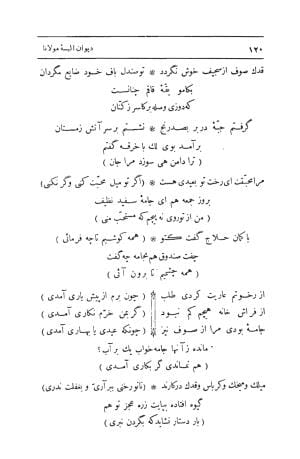 ١٢٠ دیوان البسهٔ مولانا
قدك صوف از سجیف خوش نگردد * تو مندل باف خود ضایع مگردان
بکامو یقهٔ قاقم جنانست
که دوزی وصله بر کاسر ز کتان
گرفتم جبّهٔ در بر بصد رنج * نشستم بر سر آتش زمستان
برآمد بوی لك با خرقه گفتم
( ترا دامن همی سوزد مرا جان )
مرا محبّتت ای رخت نو بعیدی هست * ( اگر تو میل محبّت کنی و گر نکنی )
بروز جمعه هم ای جامهٔ سفید نظیف
( من از تو روی نه پیچم که مستحبّ منی )
با کمان حلاج گفت کتو * ( همه کوشیم تا چه فرمائی )
جفت صندوق هم بجامه چه گفت
( همه چشمیم تا برون آئی )
از رختم عاریت کردی طلب ( چون برم از پیش یاری آمدی )
از فراش خانه هیچم کم نبود ( گر بمن خرّم نکاری آمدی )
جامهٔ بودی مرا از صوف نیز ( چونکه عیدی یا بهاری آمدی )
مانده ز آنها جامه خواب یك بر آب؟
( هم نماندی گر بکاری آمدی )
میلك و محك و کرباس و قدك در کارند * ( تا تو رختی ببر آری و بغفلت ندری )
گیوه افتاده بپایت زره عجز تو هم
( بار دستار نشاید که بگردن نبری )